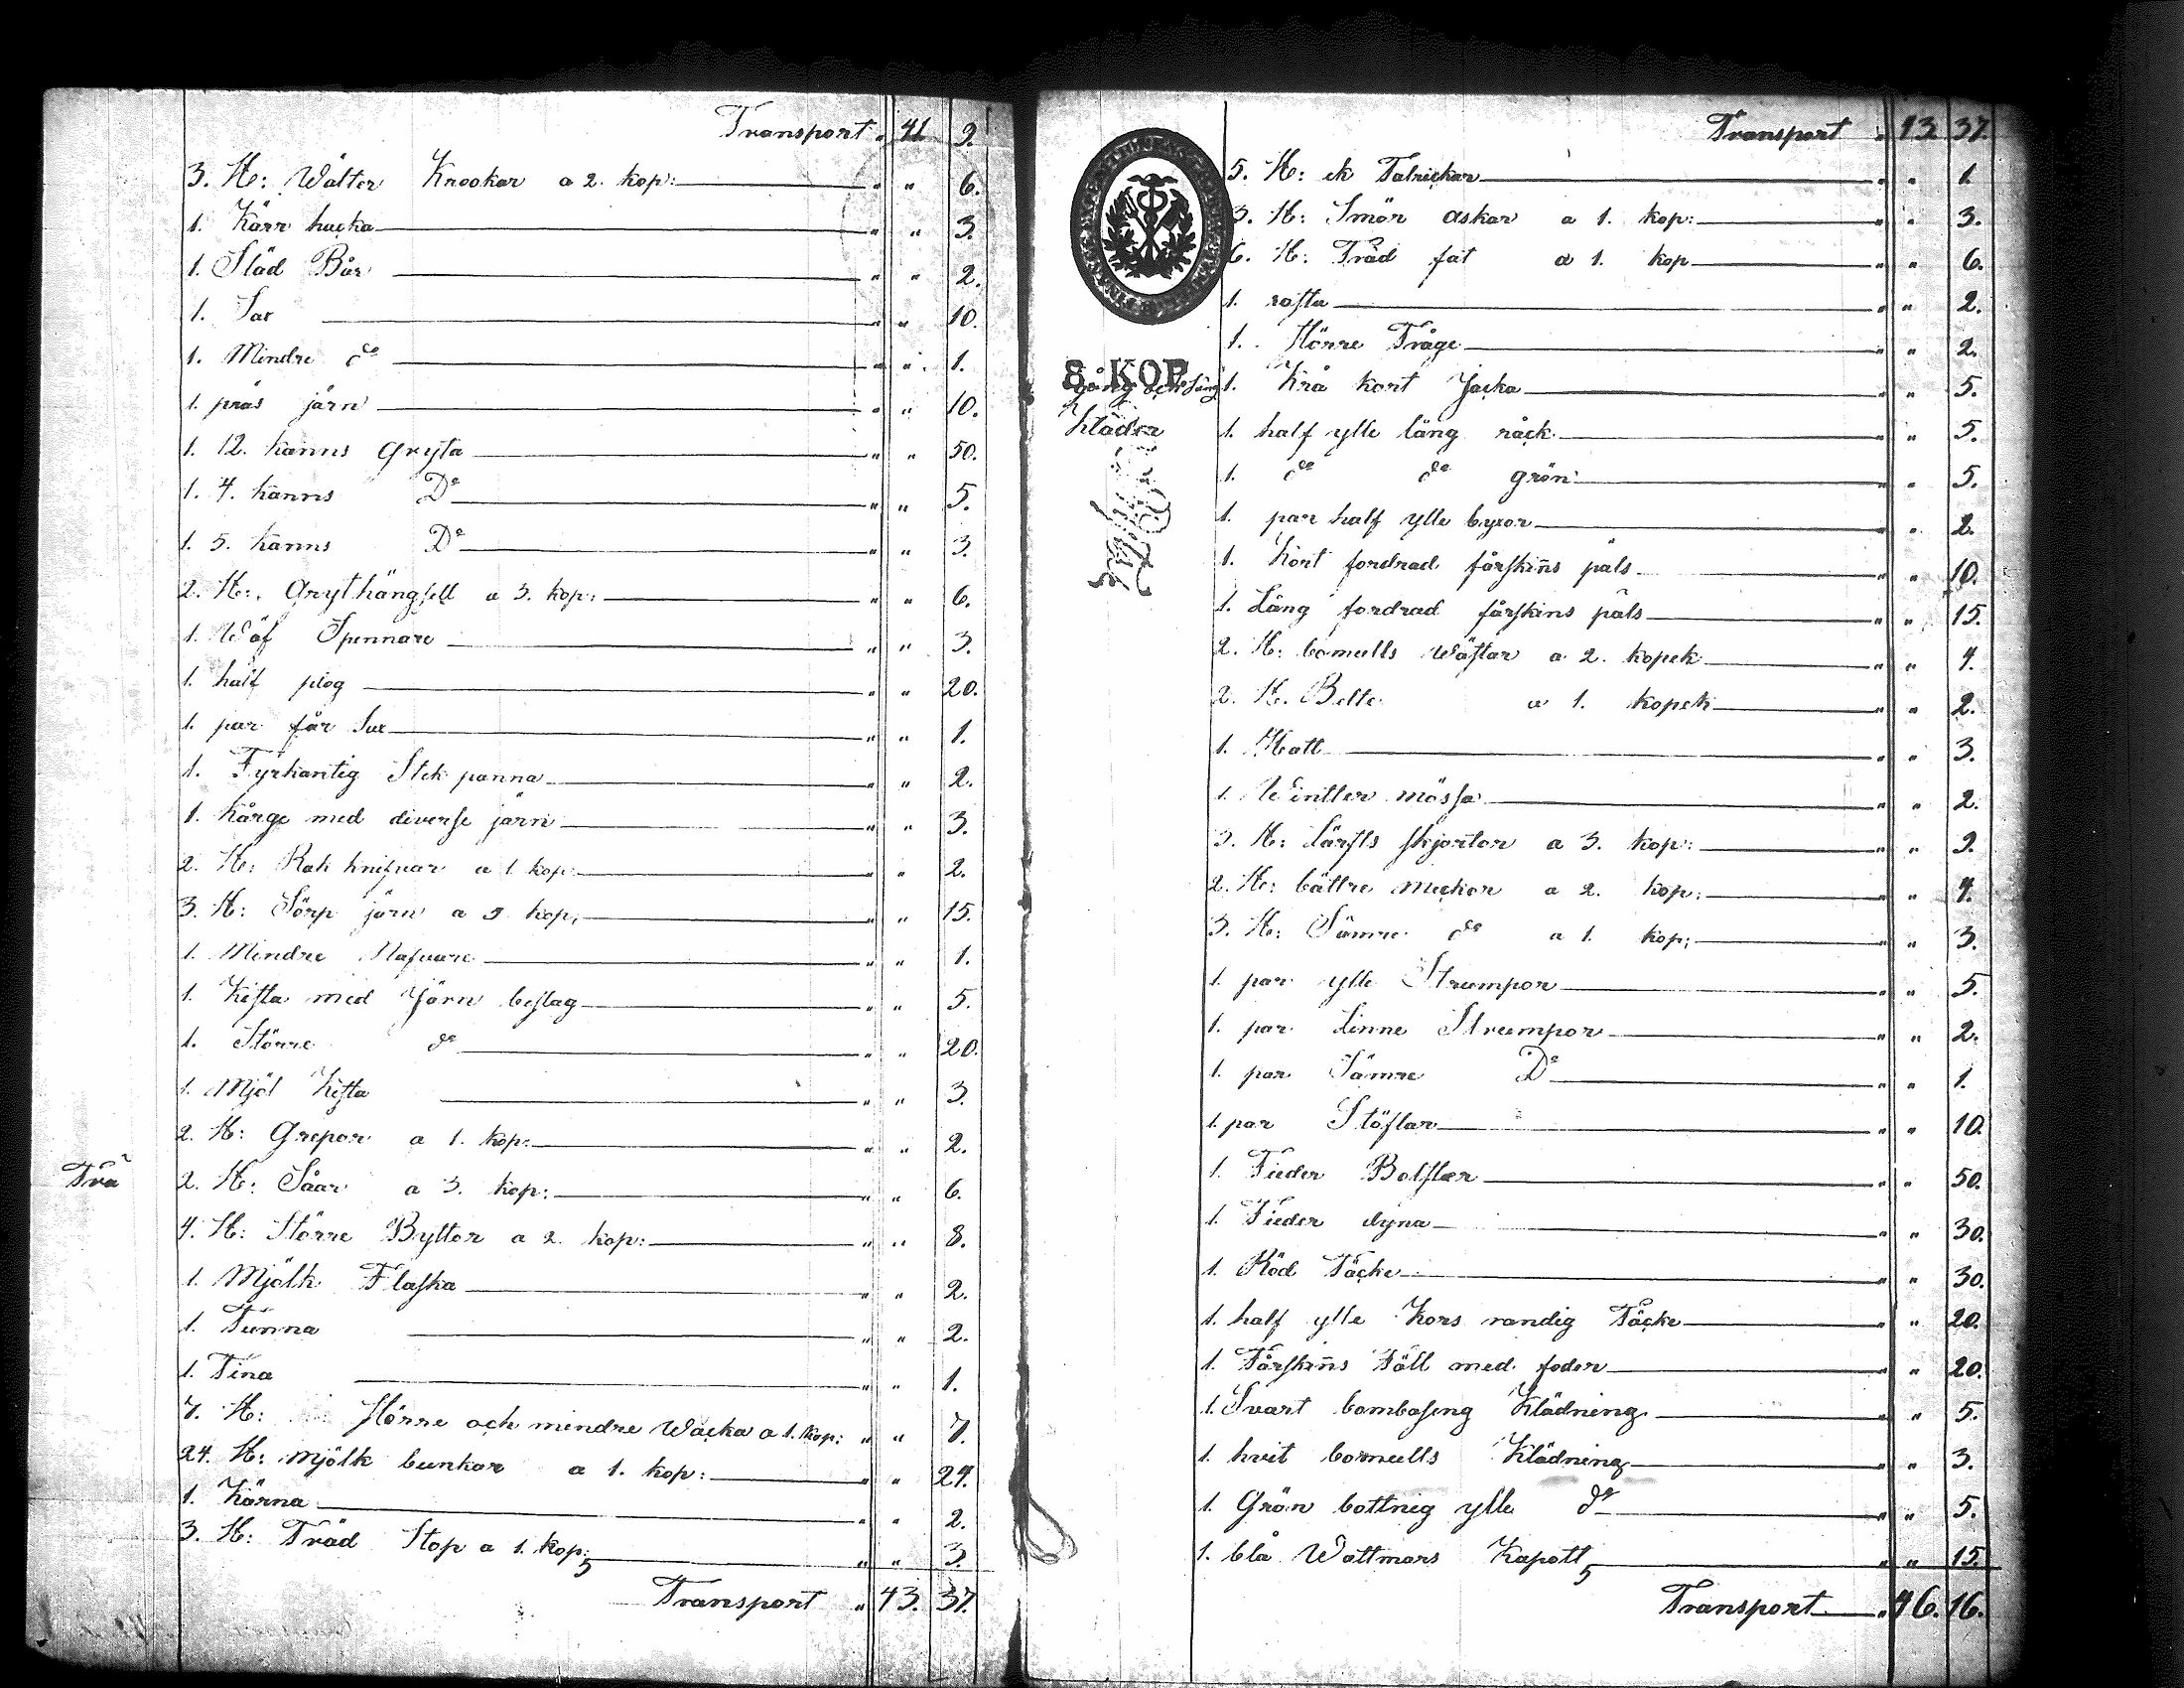 Transport " 41 9.
3. St: Wälter Krookar a 2. kop: " " 6.
1. Kärr hacka " " 3.
1. Släd Bår " " 2.
1. Sax " " 10.
1. Mindre do " " 1.
1. präs järn " " 10.
1. 12. kanns Gryta " " 50.
1. 4. kanns Do " " 5.
1. 5. kanns Do " " 3.
2. St: Grythängsell a 3. kop: " " 6.
1. Wäf Spennare " " 3.
1. half plog " " 20.
1. par får Sax " " 1.
1. Fyrkantig Stek panna " " 2.
1. kårge med diverse järn " " 3.
2. St: Rak knifvar a 1 kop: " " 2.
3. St: Sörp järn a 5 kop: " " 15.
1. Mindre Nafvare " " 1.
1. Kista med Järn beslag " " 5.
1. Större do " " 20.
1. Mjöl Kista " " 3.
2. St: Grepar a 1. kop: " " 2.
Trä
2. St: Såar a 3. kop: " " 6.
4. St: Större Byttor a 2. kop: " " 8.
1. Mjölk Flaska " " 2.
1. Tunna " " 2.
1. Tina " " 1.
7. St: större och mindre Wacka a 1. kop: " " 7.
24. St: mjölk bunkar a 1. kop: " " 24.
1. Kärna " " 2.
3. St: Träd Stop a 1. kop: " " 3.
Transport " 43. 37.
Transport " 43 37.
5. St: ek Talrickar " " 1.
3. St: Smör askar a 1. kop: " " 3.
6. St: Träd fat a 1. kop " " 6.
1. " " 2.
1. Större Tråge " " 2.
8 KOP.
gång och säng
kläder
1. Krå kort Jacka " " 5.
1. half ylle lång råck " " 5.
1. do do grön " " 5.
1. par half ylle byxor " " 2.
1. Kort fordrad fårskin̄s päls " " 10.
1. Lång fordrad fårskins päls " " 15.
2. St: bomulls Wästar a 2. kopek " " 4.
2. St. Belte a 1. kopek " " 2.
1. Hatt " " 3.
1. Wintter mössa " " 2.
3. St: Lärfts skjortor a 3. kop: " " 9.
2. St: bättre muckor a 2. kop: " " 4.
3. St: Sämre do a 1. kop: " " 3.
1. par ylle Strumpor " " 5.
1. par Linne Strumpor " " 2.
1. par Sämre Do " " 1.
1. par Stöflar " " 10.
1. Fieder Bolster " " 50.
1. Fieder dyna " " 30.
1. Röd Täcke " " 30.
1. half ylle Kors randig Täcke " " 20.
1. Fårskin̄s Fäll med foder " " 20.
1. Svart bombaseng Klädning " " 5.
1. hvit bomulls Klädning " " 3.
1. Grön bottnig ylle do " " 5.
1. blå Wattmars Kapott " " 15.
Transport " 46. 16.